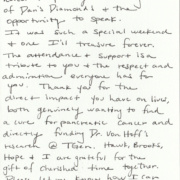 of Dan's Diamonds & the
opportunity to speak.
It was such a special weekend
& one I'll treasure forever.
The attendance & support is a
tribute to you & the respect and
admiration everyone has for
you. Thank you for the
direct impact you have on lives,
both genuinely wanting to find
a cure for pancreatic cancer and
directly funding Dr. Von Hoff's
research @ TGen. Hawk, Brooks,
Hope & I are grateful for the
gift of cherished time together.
Please let me know how I can